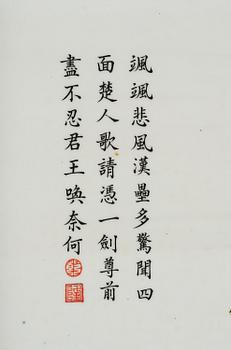 颯颯悲風漢壘多驚聞四
面楚人歌請憑一劍尊前
盡不忍君王喚奈何